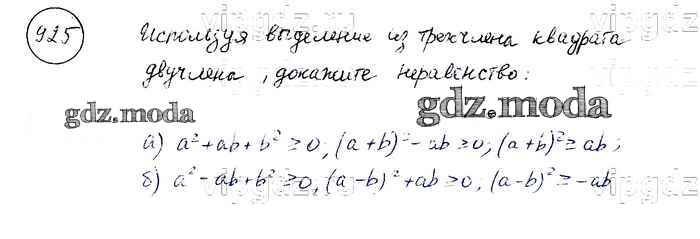 925
Используя выделение из трехчлена квадрата
двучлена, докажите неравенство:
gdz.moda
gdz.moda
а) a² + ab + b² ≥ 0; (a + b)² - ab ≥ 0; (a + b)² ≥ ab;
б) a² - ab + b² ≥ 0, (a - b)² + ab ≥ 0; (a - b)² ≥ -ab
vipgdz
vipgdz
vipgdz